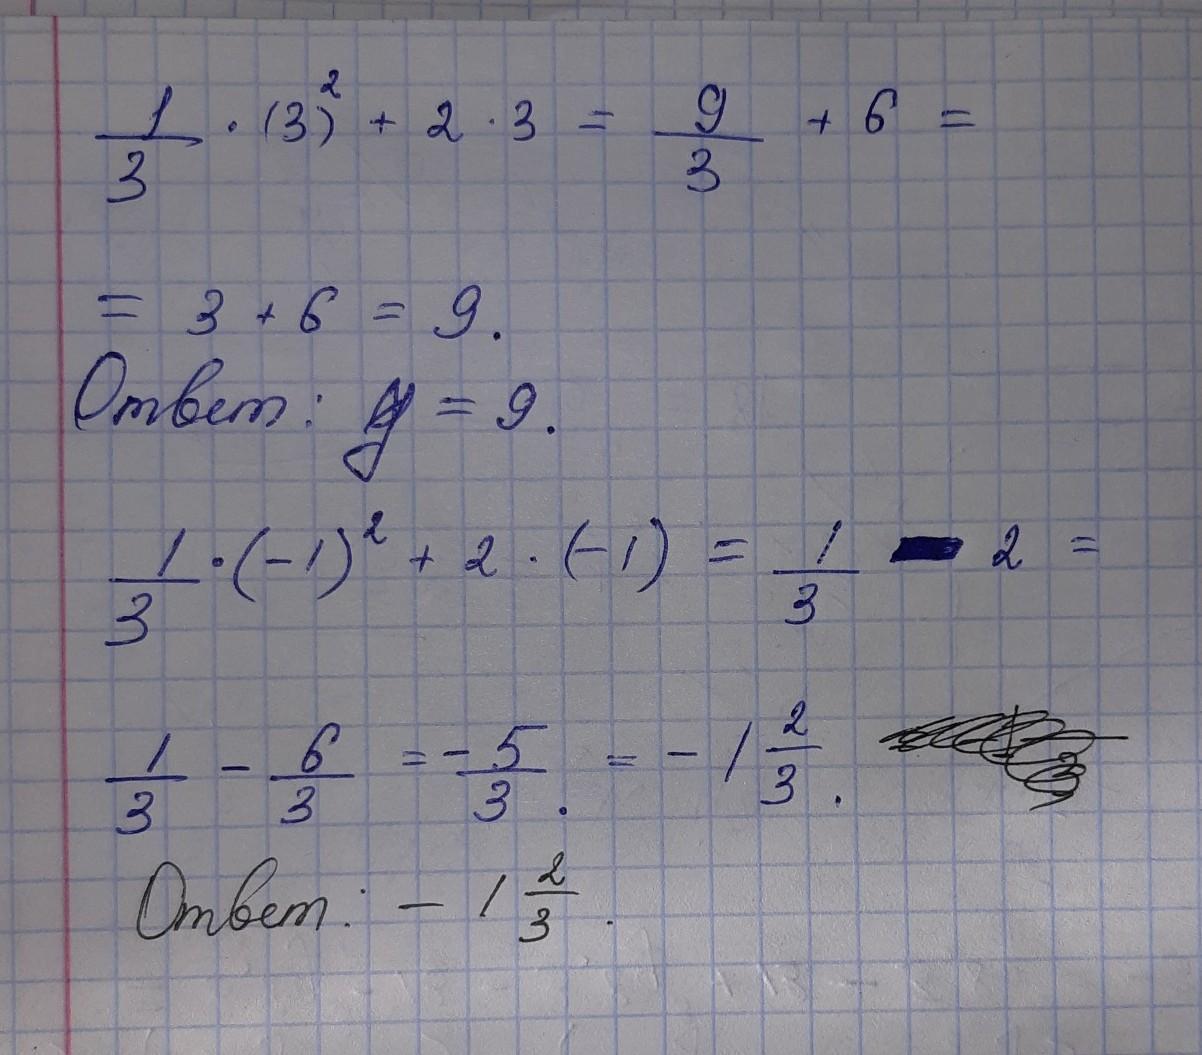 1/3 · (3)² + 2 · 3 = 9/3 + 6 =
= 3 + 6 = 9.
Ответ: y = 9.
1/3 · (-1)² + 2 · (-1) = 1/3 - 2 =
1/3 - 6/3 = -5/3. = -1 2/3.
Ответ: -1 2/3.